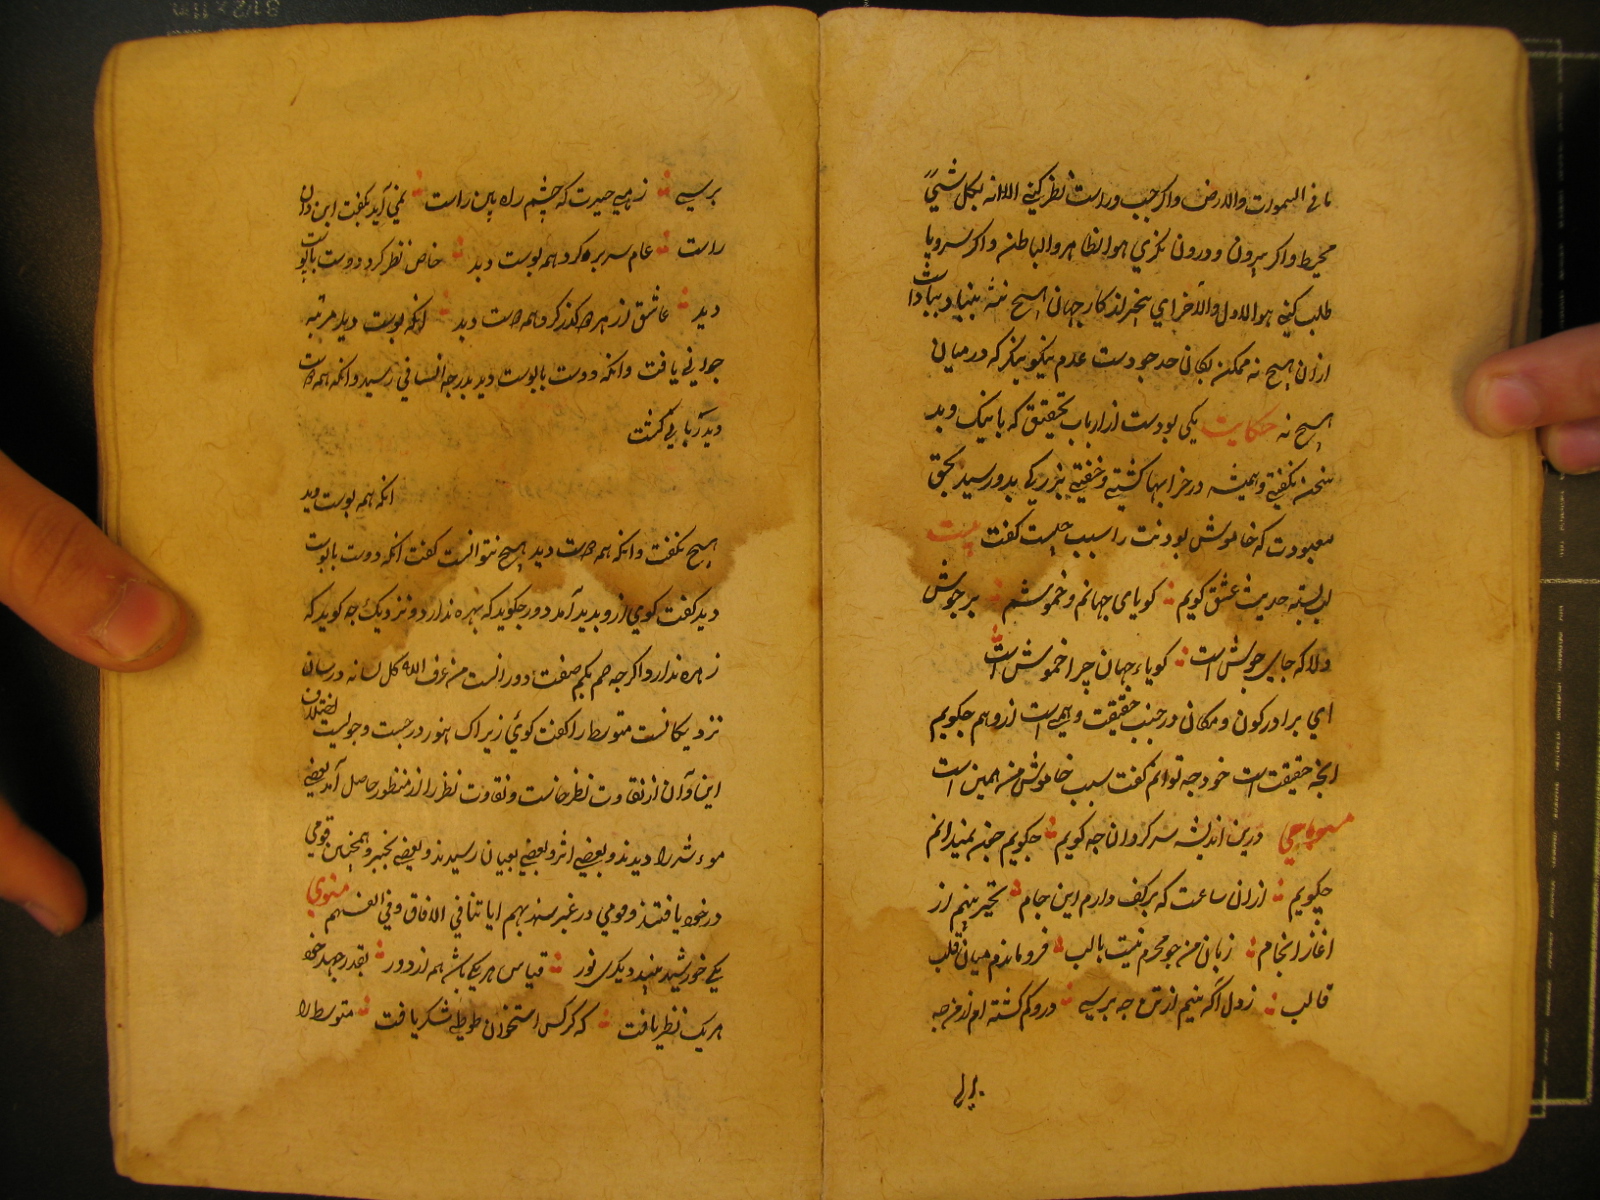 ما في السموات والارض واكر جپ وراست نظر كني الا انه بكل شيءٍ
محيط واكر بيرون ودرون نكري هو الظاهر والباطن واكر سر وپا
طلب كني هو الاول والآخر اي بيخبر از كار جهان هيچ نهٔ بنياد
ازان هيچ نه ممكن بكان حد عدم نيكو بنكر كه در ميان
هيچ نه حكايت يكى بودست از ارباب تحقيق كه با نيك وبد
سخن نكفتي وهميشه در خرابها كشتي وخفتي بزركي بدو رسيد بحق
معبودت كه خاموش بودنت را سبب چيست كفت بيت
لب بسته حديث عشق كويم كوياى جهانم وخموشم بر جوش
دلا كه جاي جوش است كوياء جهان چرا خموش است
اي برادر كون ومكان در جنب حقيقت وهمي است از وهم جكويم
انجه حقيقت است خود جه توانم كفت سبب خاموشى من همين است
رباعي درين انديشه سر كردان جه كويم جكويم جز نميدانم
جكويم ازان ساعت كه بر كف دارم اين جام تحير بينم از
اغاز انجام زبان من جو محرم نيست با لب فرو ماندم ميان قلب
قالب ز دل اكه نيم از من جه برسي درو كم كشته ام از من جه
برسي زهي حيرت كه چشم راه بين راست نمي آيد بكفت اين دان
راست عام سر بره كرد همه پوست ديد خاص نظر كرد دوست با پوست
ديد عاشق از هر كذر كرد همه دوست ديد انكه پوست ديد مرتبه
يافت وانكه دوست با پوست ديد بدرجه انساني رسيد وانكه همه دوست
ديد كشت
انكه همه پوست ديد
هيچ نكفت وانكه همه دوست ديد هيچ نتوانست كفت انكه دوست با پوست
ديد كفت كوي ازو پديد آمد دور جكويد كه بهره ندارد ونزديك جه كويد كه
زهره ندارد اكر جه صم بكم صفت دورانست من عرف الله كل لسانه در شان
نزديكانست متوسط را كفت كوئ زيراك هنوز در جست وجوليست اختلاف
اين وآن از تفاوت نظر خاست وتفاوت نظر را از منظور حاصل آيد بعضى
موءثر را ديدند وبعضي اثر وبعضي بعيان رسيدند وبعضي بخبر وهمچنين قومي
در خود يافتند وقومي در غير سنريهم اياتنا في الافاق وفي انفسهم مثنوي
يكي خورشيد بيند ديكرى نور قياس هر يكي باشد هم از دور بقدر جهد خود
هر يك نظر يافت كه كركس استخوان طوطي شكر يافت متوسط را